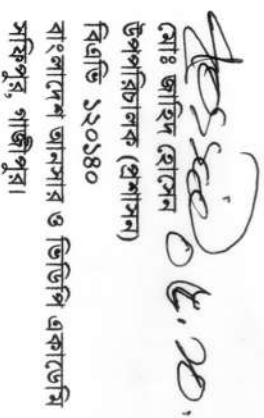 মোঃ জাহিদ হোসেন
উপপরিচালক (প্রশাসন)
বিএভি ১২০১৪০
বাংলাদেশ আনসার ও ভিডিপি একাডেমি
সফিপুর, গাজীপুর।